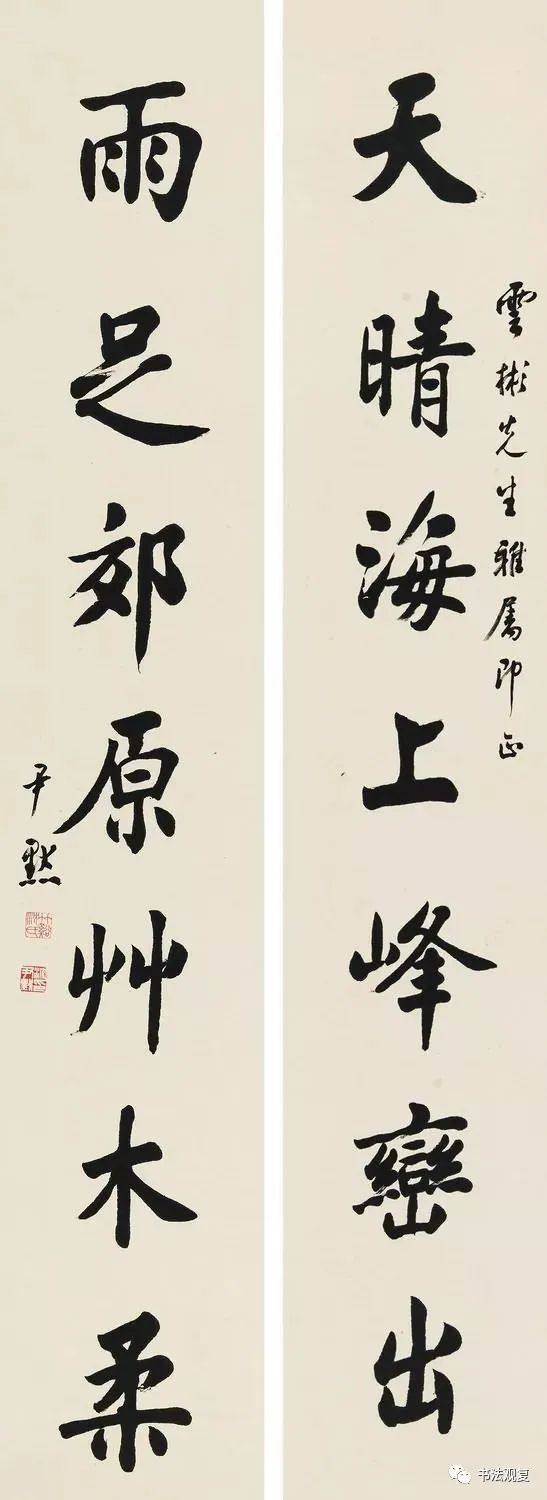 雲彬先生雅屬即正
天晴海上峰巒出
雨足郊原艸木柔
尹默
书法观复